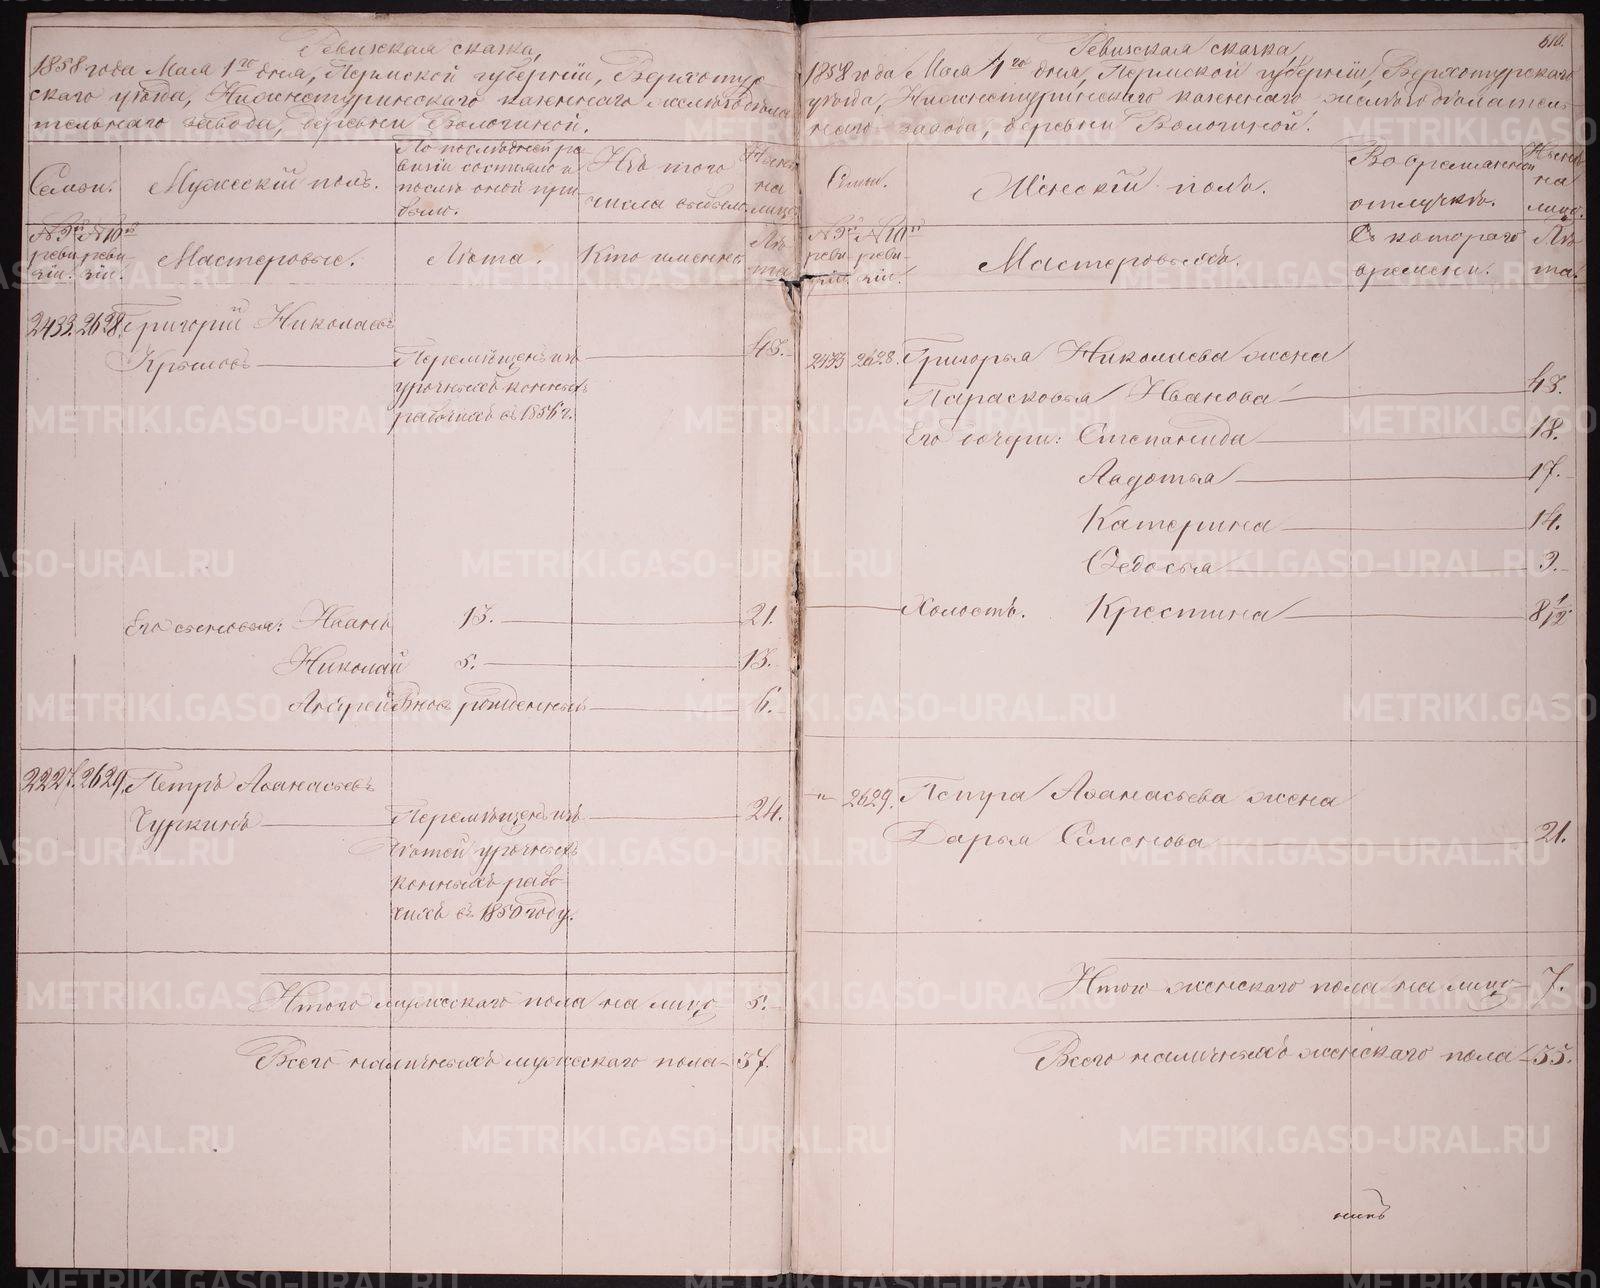 Ревизская сказка,
1858 года Мая 1го дня, Пермской губерніи, Верхотур
скаго уѣзда, Нижнетуринскаго казеннаго желѣзодѣла
тельнаго завода, деревни Волочиной.
Семьи.
Мужескій полъ.
По послѣдней ре
визіи состояло и
послѣ оной при
было.
Изъ того
числа выбыло.
Нынѣ
на
лицо.
№ 9й
реви
зіи.
№ 10й
реви-
зіи.
Мастеровые.
Лѣта.
Кто именно
Лѣ
та
2433. 2628. Григорій Николаевъ
Крыловъ
Перемѣщенъ изъ
урочныхъ конныхъ
рабочихъ въ 1856 г.
48.
Его сыновья: Иванъ 13. 21.
Николай 5. 13.
Андрей Вновь рожденный 6.
2227. 2629. Петръ Афанасьевъ
Чуркинъ
Перемѣщенъ изъ
лѣтей урочныхъ
конныхъ рабо
чихъ въ 1850 году.
24.
Итого мужескаго пола на лицо 5.
Всего наличныхъ мужескаго пола 37.
610.
Ревизская сказка,
1858 года Мая 1го дня, Пермской губерніи, Верхотурскаго
уѣзда, Нижнетуринскаго казеннаго желѣзодѣлатель-
наго завода, деревни Волочиной.
Семьи.
Женскій полъ.
Во временной
отлучкѣ.
Нынѣ
на
лицо.
№ 9й
реви
зіи.
№ 10й
реви-
зіи.
Мастеровыхъ.
Съ котораго
времени.
Лѣ
та.
2433 2628. Григорья Николаева жена
Парасковья Иванова 48.
Его дочери: Степанида 18.
Авдотья 17.
Катерина 14.
Федосья 3.
Холостъ. Крестина 8/12
" 2629. Петра Афанасьева жена
Дарья Семенова 21.
Итого женскаго пола на лицо 7.
Всего наличныхъ женскаго пола 55.
METRIKI.GASO-URAL.RU